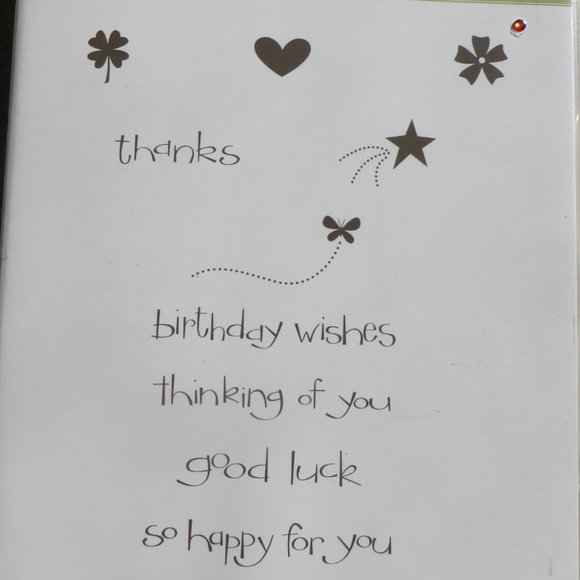 thanks
birthday wishes
thinking of you
good luck
so happy for you